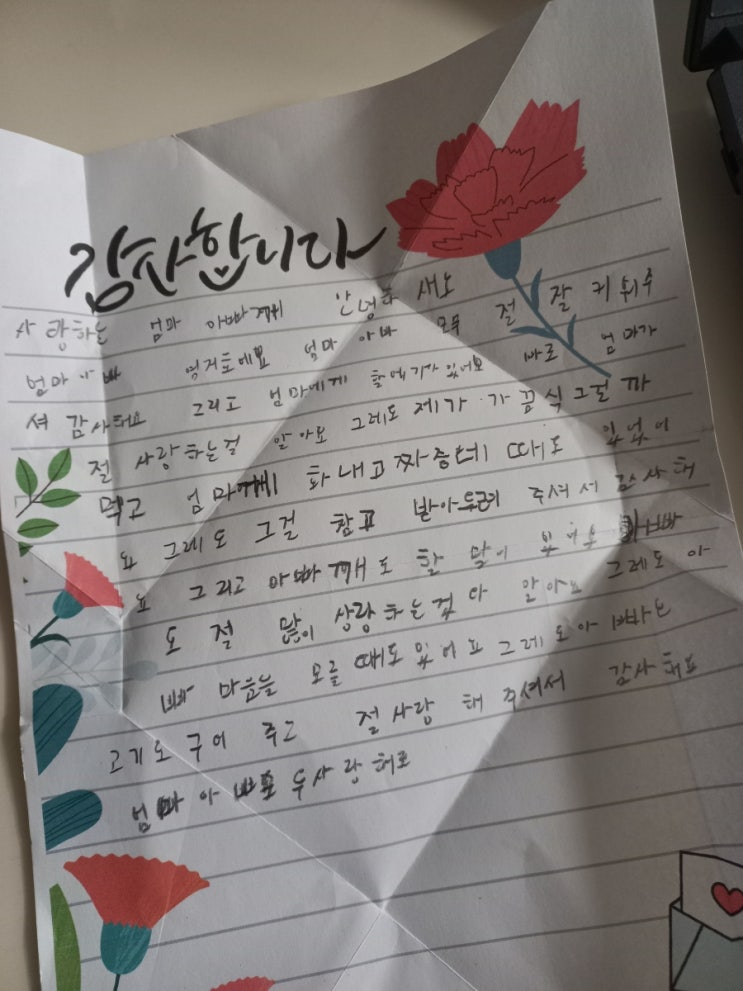 감사합니다
사랑하는 엄마 아빠께 안녕하새요
엄마 아빠 엄마 아빠 모두 절 잘 키워주
셔 감사해요 그리고 엄마에게 할 얘기가 있어요 바로 엄마가
절 사랑하는걸 알아요 그레도 제가 가끔식 그걸 까
먹고 엄마에게 화내고 짜증낼 때도 있었어
요 그레도 그걸 참고 주셔서 감사해
요 그리고 아빠깨도 할 말이 있어요 아빠
도 절 많이 상랑하는걸 다 알아요 그레도 아
빠 마음을 모를 때도 있어요 그레도 아빠는
고기도 구어 주고 절 사랑해 주셔서 감사해요
엄마 아빠 모두 사랑해요